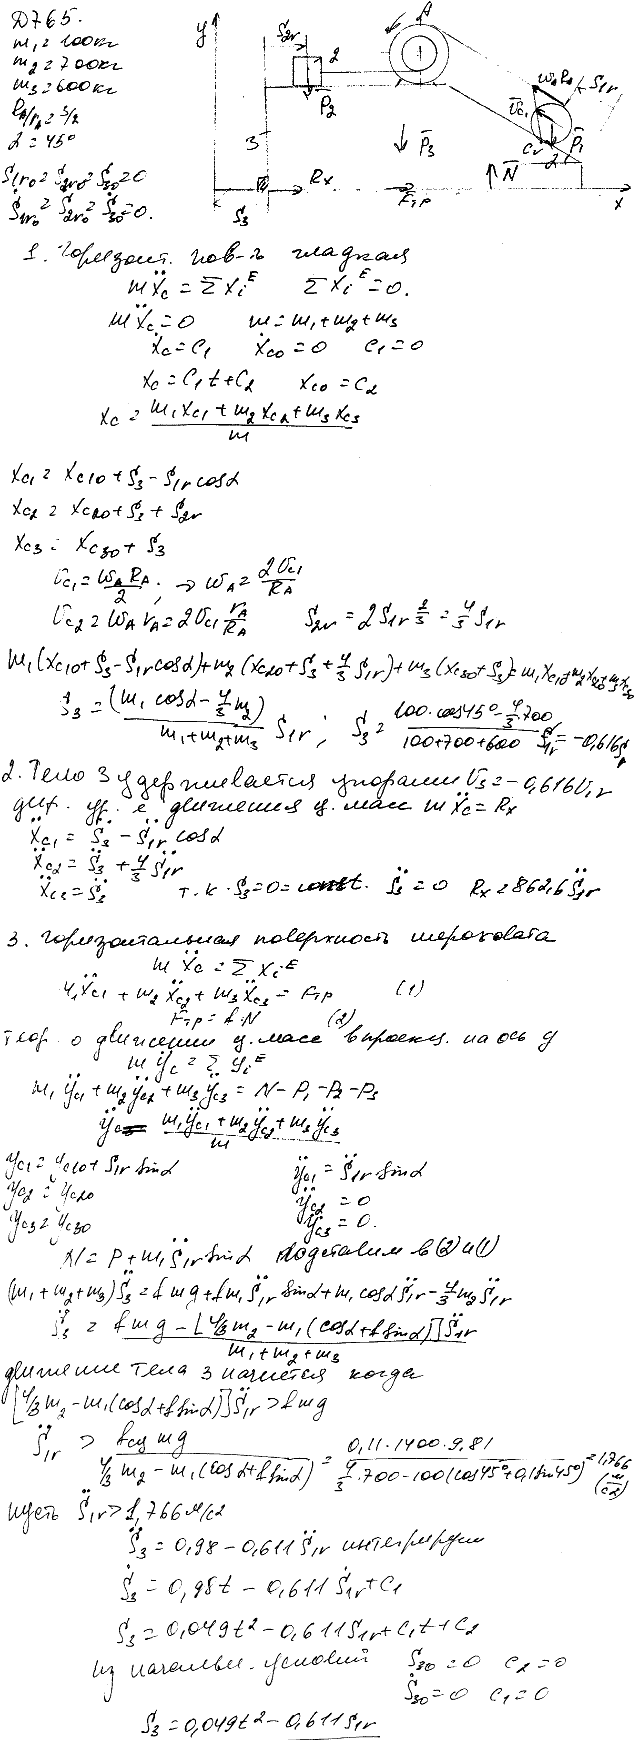 Д765.
m₁ = 100кг
m₂ = 700кг
m₃ = 600кг
R_A/r_A = 3/2
α = 45°
S₁r₀ = S₂r₀ = S₃₀ = 0
Ṡ₁r₀ = Ṡ₂r₀ = Ṡ₃₀ = 0.
y
S₂r
2
A
P̄₂
3
P̄₃
ω_A R_A
S₁r
v̄c₁
C₁
P̄₁
α
N̄
R̄x
F̄тр
x
S₃
1. Горизонт. пов-ть гладкая
mẌc = ΣXiᴱ ΣXiᴱ = 0.
mẌc = 0 m = m₁+m₂+m₃
Ẋc = C₁ Ẋc₀ = 0 C₁ = 0
Xc = C₁t + C₂ Xc₀ = C₂
Xc = (m₁Xc₁ + m₂Xc₂ + m₃Xc₃)/m
Xc₁ = Xc₁₀ + S₃ − S₁r cosα
Xc₂ = Xc₂₀ + S₃ + S₂r
Xc₃ = Xc₃₀ + S₃
Vc₁ = ω_A R_A/2; → ω_A = 2Vc₁/R_A
Vc₂ = ω_A r_A = 2Vc₁ r_A/R_A S₂r = 2S₁r 2/3 = 4/3 S₁r
m₁(Xc₁₀+S₃−S₁r cosα)+m₂(Xc₂₀+S₃+4/3 S₁r)+m₃(Xc₃₀+S₃) = m₁Xc₁₀+m₂Xc₂₀+m₃Xc₃₀
S₃ = (m₁ cosα − 4/3 m₂)/(m₁+m₂+m₃) S₁r; S₃ = (100·cos45° − 4/3·700)/(100+700+600) S₁r = −0,616 S₁r
2. Тело 3 удерживается упорами V₃ = −0,616V₁r
диф. ур. е движения ц. масс mẌc = Rx
Ẍc₁ = S̈₃ − S̈₁r cosα
Ẍc₂ = S̈₃ + 4/3 S̈₁r
Ẍc₃ = S̈₃ т.к. S₃ = 0 = const. S̈₃ = 0 Rx = 862,6 S̈₁r
3. Горизонтальная поверхность шероховата
mẌc = ΣXiᴱ
m₁Ẍc₁ + m₂Ẍc₂ + m₃Ẍc₃ = Fтр (1)
Fтр = f·N (2)
теор. о движении ц. масс в проекц. на ось y
mÿc = Σyiᴱ
m₁ÿc₁ + m₂ÿc₂ + m₃ÿc₃ = N − P₁ − P₂ − P₃
ÿc = (m₁ÿc₁ + m₂ÿc₂ + m₃ÿc₃)/m
yc₁ = yc₁₀ + S₁r sinα ÿc₁ = S̈₁r sinα
yc₂ = yc₂₀ ÿc₂ = 0
yc₃ = yc₃₀ ÿc₃ = 0.
N = P + m₁S̈₁r sinα подставим в (2) и (1)
(m₁+m₂+m₃)S̈₃ = fmg + fm₁S̈₁r sinα + m₁ cosα S̈₁r − 4/3 m₂S̈₁r
S̈₃ = (fmg − [4/3 m₂ − m₁(cosα + f sinα)]S̈₁r)/(m₁+m₂+m₃)
движение тела 3 начнется когда
[4/3 m₂ − m₁(cosα + f sinα)]S̈₁r > fmg
S̈₁r > fсц mg/(4/3 m₂ − m₁(cosα + f sinα)) = 0,11·1400·9,81/(4/3·700 − 100(cos45° + 0,1 sin45°)) = 1,766 (м/с²)
пусть S̈₁r > 1,766 м/с²
S̈₃ = 0,98 − 0,611 S̈₁r интегрируем
Ṡ₃ = 0,98t − 0,611 Ṡ₁r + C₁
S₃ = 0,049t² − 0,611 S₁r + C₁t + C₂
из начальн. условий S₃₀ = 0 C₂ = 0
Ṡ₃₀ = 0 C₁ = 0
S₃ = 0,049t² − 0,611 S₁r